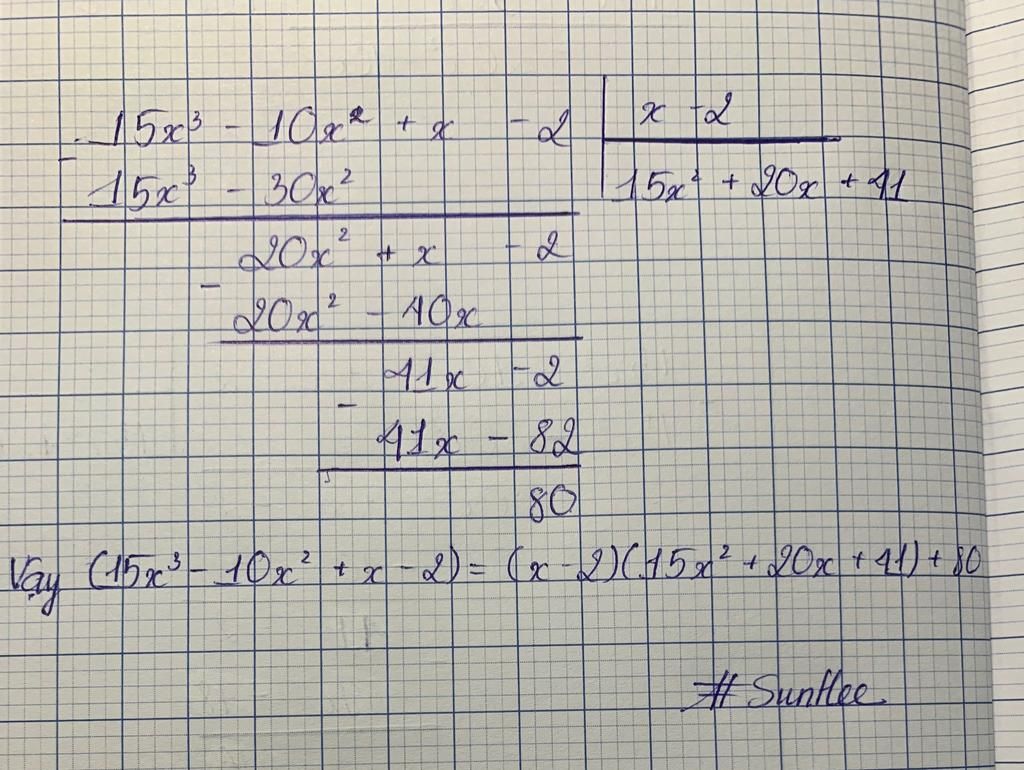 15x³ - 10x² + x - 2 | x - 2
15x³ - 30x² | 15x² + 20x + 41
20x² + x - 2
-
20x² - 40x
41x - 2
-
41x - 82
80
Vậy (15x³ - 10x² + x - 2) = (x - 2)(15x² + 20x + 41) + 80
# SunHee